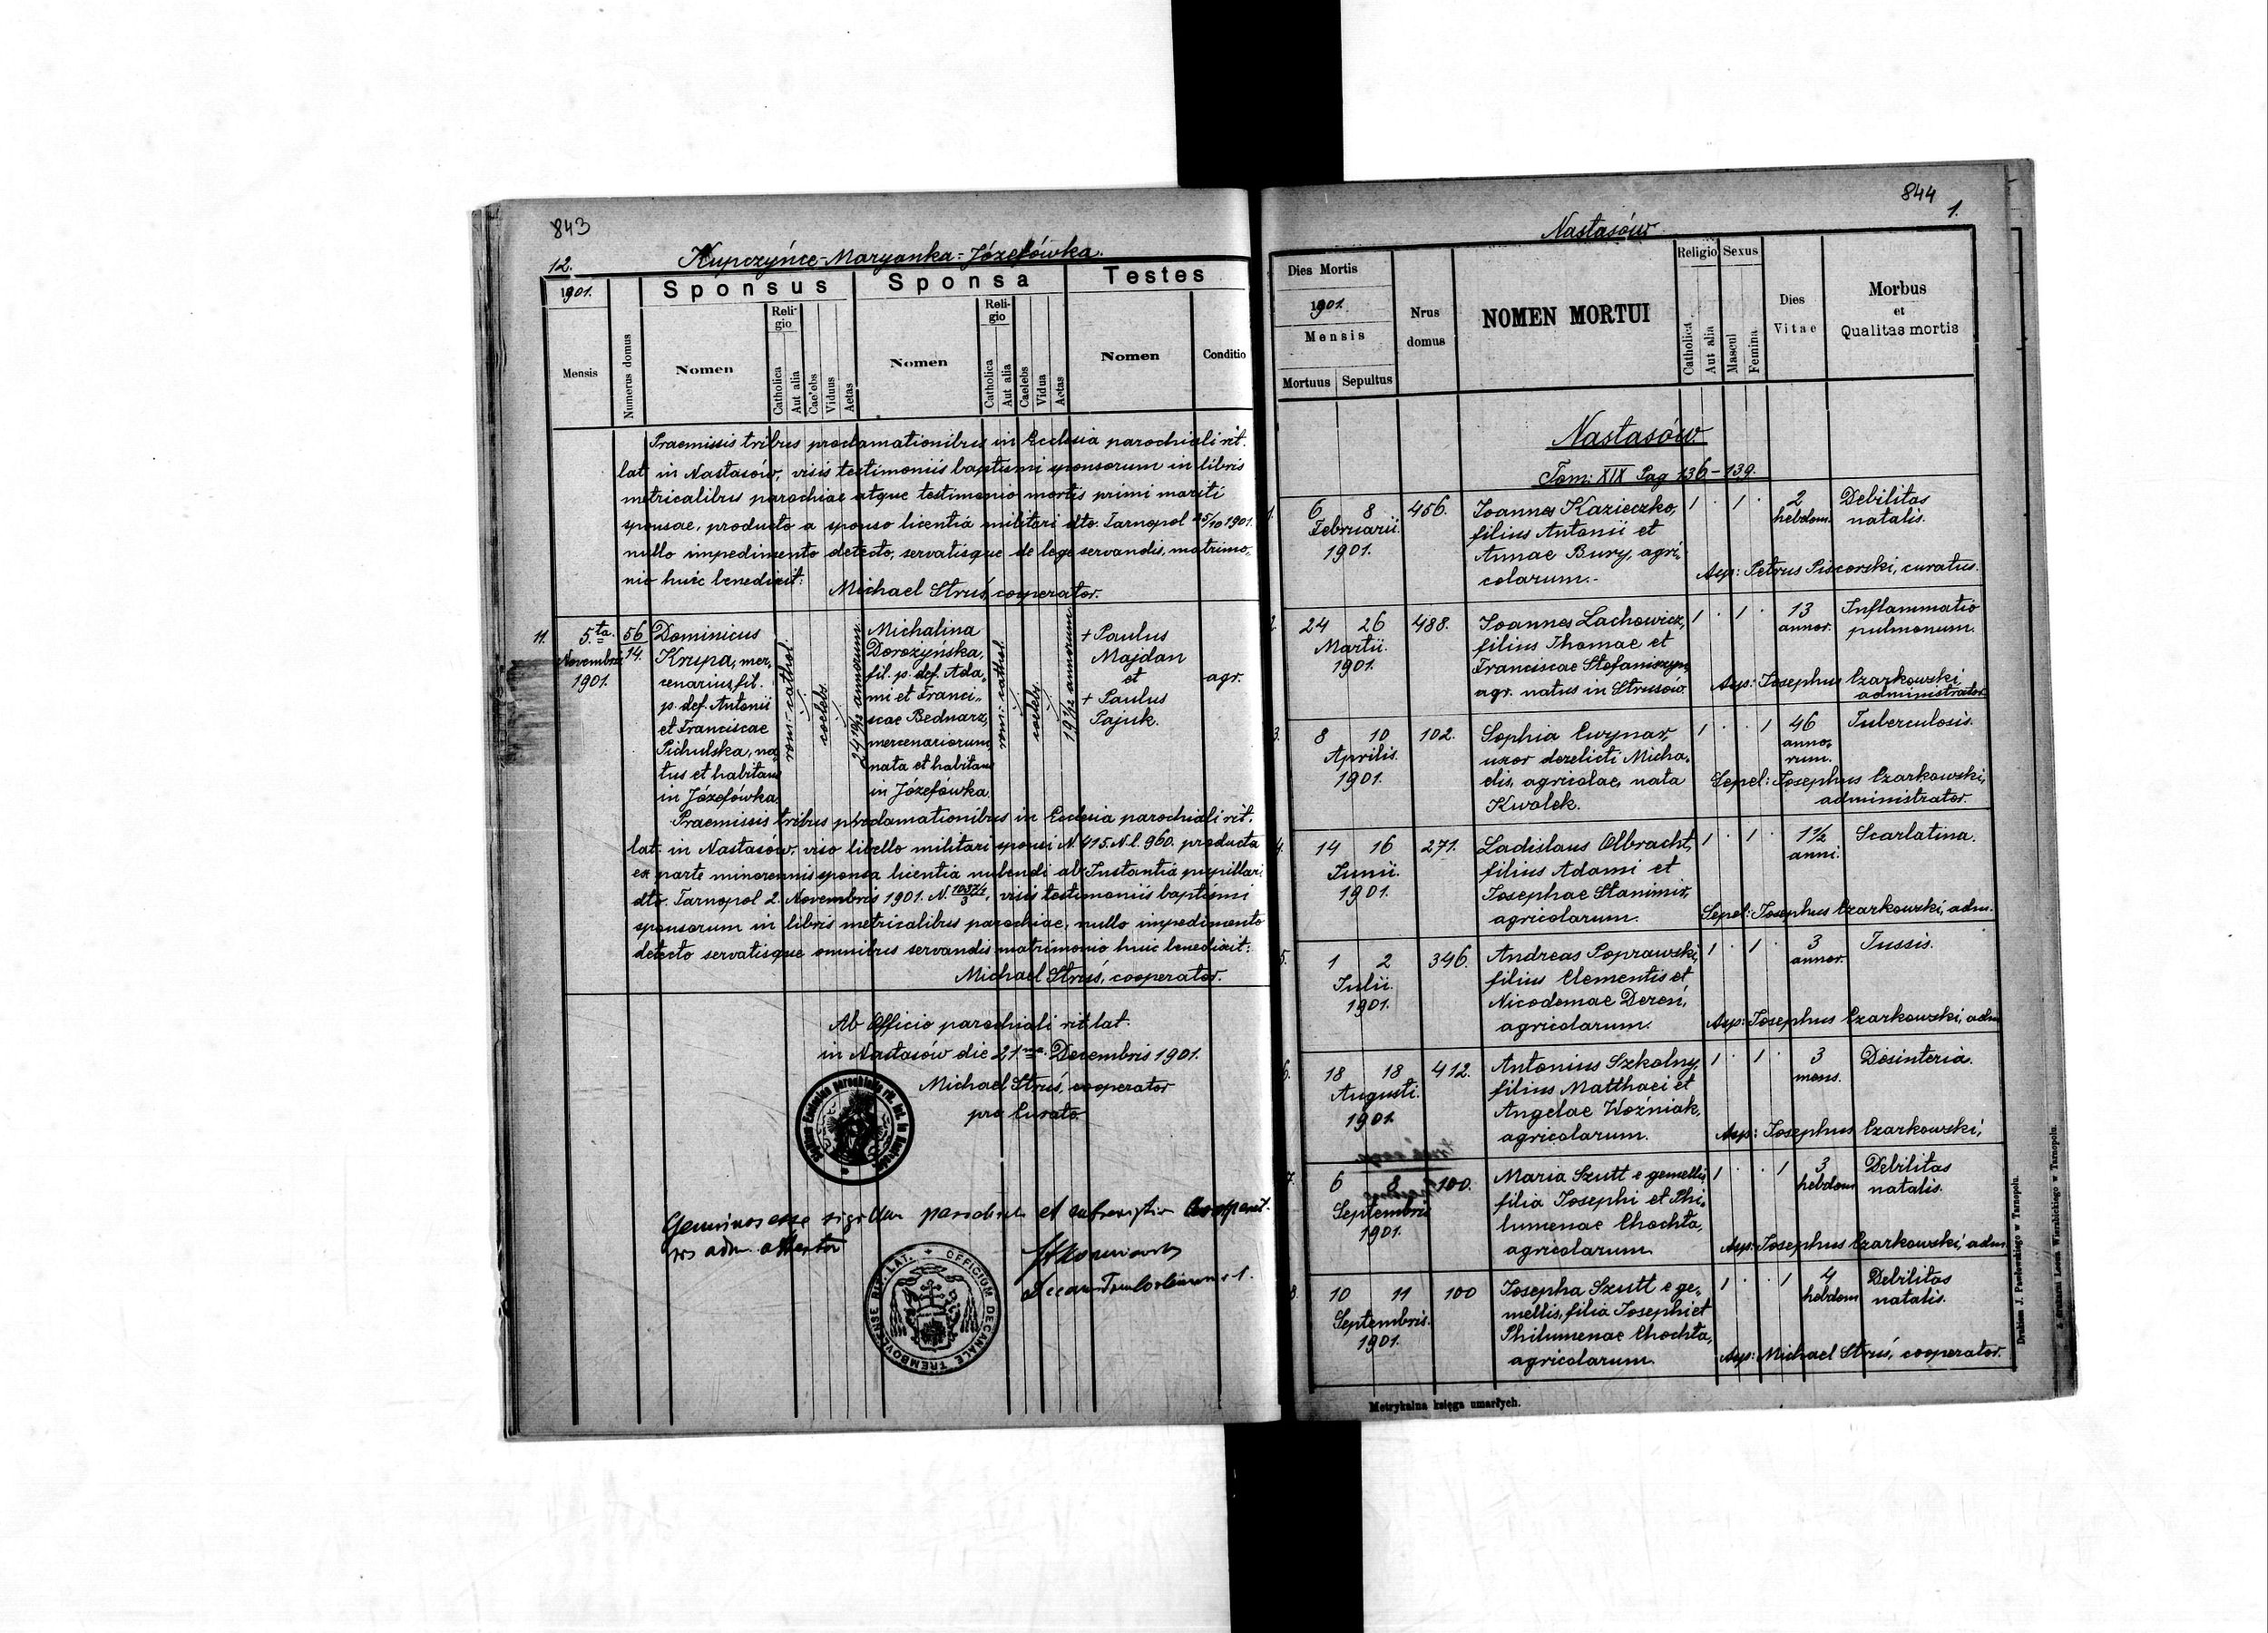 843
Kupczyńce-Maryanka-Józefówka.
12.
1901. Sponsus Sponsa Testes
Mensis
Numerus domus
Nomen
Religio
Catholica
Aut alia
Caelebs
Viduus
Aetas
Nomen
Religio
Catholica
Aut alia
Caelebs
Vidua
Aetas
Nomen
Conditio
Praemissis tribus proclamationibus in Ecclesia parochiali rit.
lat. in Nastasów, visis testimoniis baptismi sponsorum in libris
metricalibus parochiae atque testimonio mortis primi mariti
sponsae, producto a sponso licentiâ militari dto. Tarnopol 25/10 1901.
nullo impedimento detecto, servatisque de lege servandis, matrimo-
nio huic benedixit:
Michael Struś, cooperator.
11.
5.ta
Novembris
1901.
56
14.
Dominicus
Krupa, mer,
cenarius, fil.
p. def. Antonii
et Franciscae
Pichulska, na,
tus et habitans
in Józefówka.
rom.-cathol.
coelebs.
24 10/12 annorum.
Michalina
Dorożyńska,
fil. p. def. Ada,
mi et Franci,,
scae Bednarz,
mercenariorum,
nata et habitans
in Józefówka.
rom.-cathol.
coelebs.
19 1/12 annorum
+ Paulus
Majdan
et
+ Paulus
Pajuk.
agr.
Praemissis tribus proclamationibus in Ecclesia parochiali rit.
lat. in Nastasów, viso libello militari sponsi N. 415. N.l. 960. producta
ex parte minorennis sponsa licentia nubendi ab Instantia pupillari
dto. Tarnopol 2. Novembris 1901. N. visis testimoniis baptismi
sponsorum in libris metricalibus parochiae, nullo impedimento
detecto servatisque omnibus servandis matrimonio huic benedixit:
Michael Struś, cooperator.
Ab Officio parochiali rit. lat.
in Nastasów die 21.ma Decembris 1901.
Michael Struś, cooperator
pro Curato.
OFFICIUM DECANALE TREMBOVLENSE RIT. LAT.
844
1.
Nastasów
Dies Mortis
1901.
Mensis
Mortuus Sepultus
Nrus
domus
NOMEN MORTUI
Religio
Catholica
Aut alia
Sexus
Mascul
Femina
Dies
Vitae
Morbus
et
Qualitas mortis
Nastasów
Tom: XIX Pag 136-139.
1.
6 8
Februarii.
1901.
456.
Joannes Kazieczko,
filius Antonii et
Annae Bury, agri,,
colarum.-
1 . 1 .
2
hebdom.
Debilitas
natalis.
Asp: Petrus Piscorski, curatus.
2.
24 26
Martii.
1901.
488.
Joannes Lachowicz,
filius Thomae et
Franciscae Stefaniszyn,
agr. natus in Strusów.
1 . 1 .
13
annor.
Inflammatio
pulmonum.
Asp: Josephus Czarkowski,
administrator
3.
8 10
Aprilis.
1901.
102.
Sophia Cwynar,
uxor derelicti Micha,
elis, agricolae, nata
Kwolek.
1 . . 1
46
anno,
rum.
Tuberculosis.
Sepel: Josephus Czarkowski,
administrator.
4.
14 16
Junii.
1901.
271.
Ladislaus Olbracht,
filius Adami et
Josephae Stanimir,
agricolarum.
1 . 1 .
1 1/2
anni.
Scarlatina.
Sepel: Josephus Czarkowski, adm.
5.
1 2
Julii.
1901.
346.
Andreas Poprawski,
filius Clementis et
Nicodemae Dereń,
agricolarum.
1 . 1 .
3
annor.
Tussis.
Asp: Josephus Czarkowski, adm
6.
18 18
Augusti.
1901.
412.
Antonius Szkolny,
filius Matthaei et
Angelae Woźniak,
agricolarum.
1 . 1 .
3
mens.
Disinteria.
Asp: Josephus Czarkowski,
7.
6 8
Septembris
1901.
100.
Maria Szutt e gemellis,
filia Josephi et Phi,
lumenae Chochta,
agricolarum.
1 . . 1
3
hebdom
Debilitas
natalis.
Asp: Josephus Czarkowski, adm.
8.
10 11
Septembris.
1901.
100
Josepha Szutt e ge,
mellis, filia Josephi et
Philumenae Chochta,
agricolarum.
1 . . 1
4
hebdom
Debilitas
natalis.
Asp: Michael Struś, cooperator.
Metrykalna księga umarłych.
Drukiem J. Pawłowskiego w Tarnopolu.